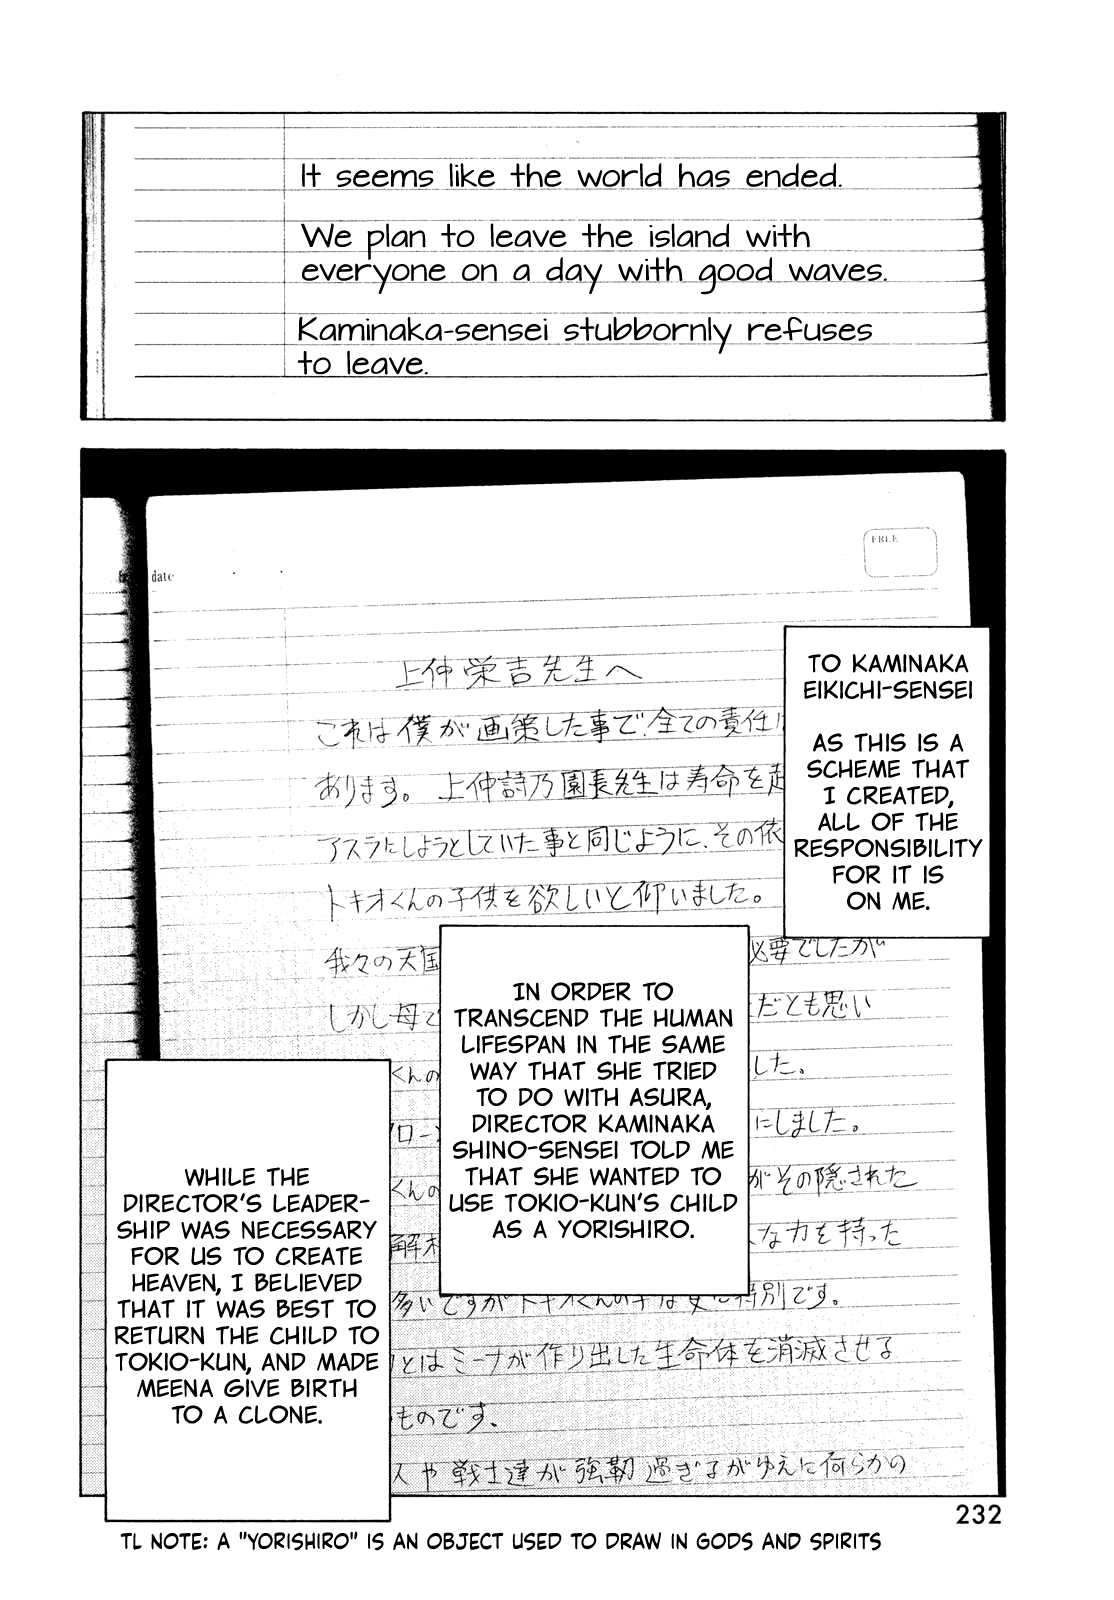 It seems like the world has ended.
We plan to leave the island with
everyone on a day with good waves.
Kaminaka-sensei stubbornly refuses
to leave.
FREE
date
上仲栄吉先生へ
これは僕が画策した事で、全ての責任は
あります。上仲詩乃園長先生は寿命を超
アスラにしようとしていた事と同じように、その依
トキオくんの子供を欲しいと仰いました。
我々の天国
必要でしたが
しかし母で
だとも思い
くんの
した。
ロー
にしました。
くんの
がその隠された
解
な力を持った
多いですがトキオくんの子は更に特別です。
とはミーナが作り出した生命体を消滅させる
ものです。
や戦士達が強靭過ぎるがゆえに何らかの
TO KAMINAKA
EIKICHI-SENSEI
AS THIS IS A
SCHEME THAT
I CREATED,
ALL OF THE
RESPONSIBILITY
FOR IT IS
ON ME.
IN ORDER TO
TRANSCEND THE HUMAN
LIFESPAN IN THE SAME
WAY THAT SHE TRIED
TO DO WITH ASURA,
DIRECTOR KAMINAKA
SHINO-SENSEI TOLD ME
THAT SHE WANTED TO
USE TOKIO-KUN'S CHILD
AS A YORISHIRO.
WHILE THE
DIRECTOR'S LEADER-
SHIP WAS NECESSARY
FOR US TO CREATE
HEAVEN, I BELIEVED
THAT IT WAS BEST TO
RETURN THE CHILD TO
TOKIO-KUN, AND MADE
MEENA GIVE BIRTH
TO A CLONE.
232
TL NOTE: A "YORISHIRO" IS AN OBJECT USED TO DRAW IN GODS AND SPIRITS